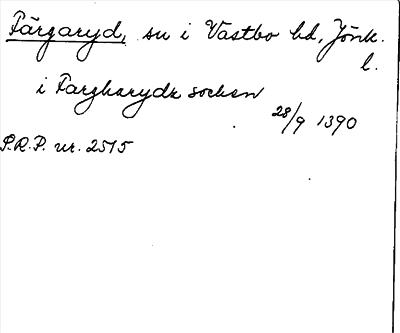 Färgaryd, sn i Västbo hd, Jönk.
l.
i Fargharydz sochen
28/9 1390
P.R.P. nr. 2515